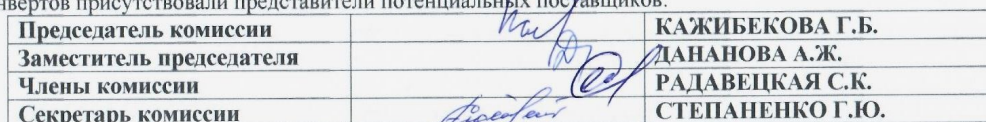 нвертов присутствовали представители потенциальных поставщиков.
Председатель комиссии КАЖИБЕКОВА Г.Б.
Заместитель председателя ДАНАНОВА А.Ж.
Члены комиссии РАДАВЕЦКАЯ С.К.
Секретарь комиссии СТЕПАНЕНКО Г.Ю.